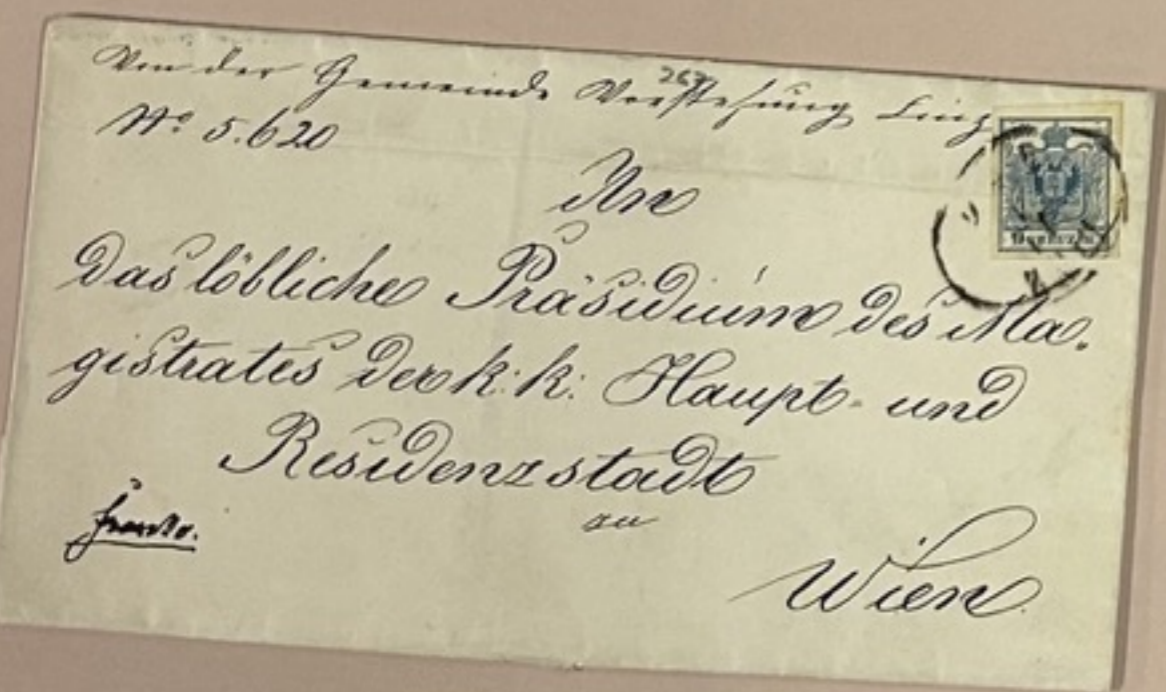 Von der Gemeinde Vorstehung Linz
267
Nº 5.620
An
Das löbliche Präsidium des Ma-
gistrates der k: k: Haupt- und
Residenzstadt
zu
Wien.
franko.